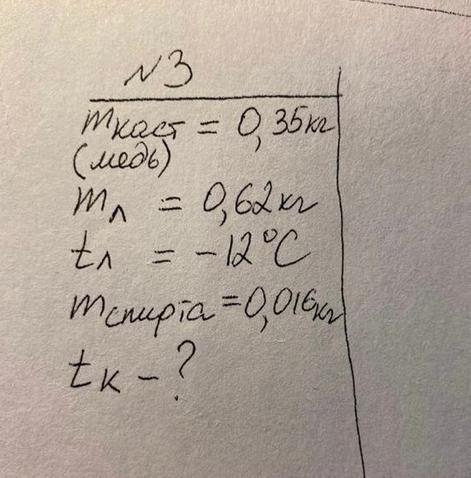 №3
mкаст = 0,35кг
(медь)
mл = 0,62кг
tл = -12°C
mспирта = 0,016кг
tк - ?